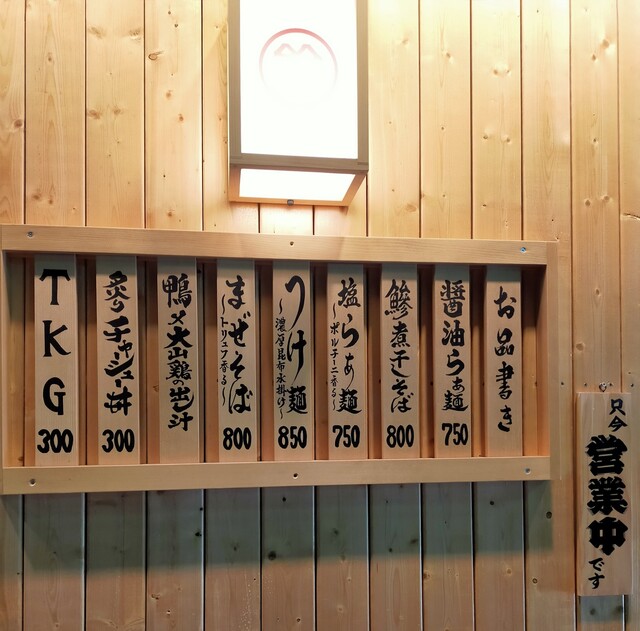 お品書き
醤油らぁ麺 750
鰺煮干しそば 800
塩らぁ麺 750
～ポルチーニ香る～
つけ麺 850
～濃厚昆布水掛け～
まぜそば 800
～トリュフ香る～
鴨×大山鶏の出汁
炙りチャーシュー丼 300
TKG 300
只今
営業中
です